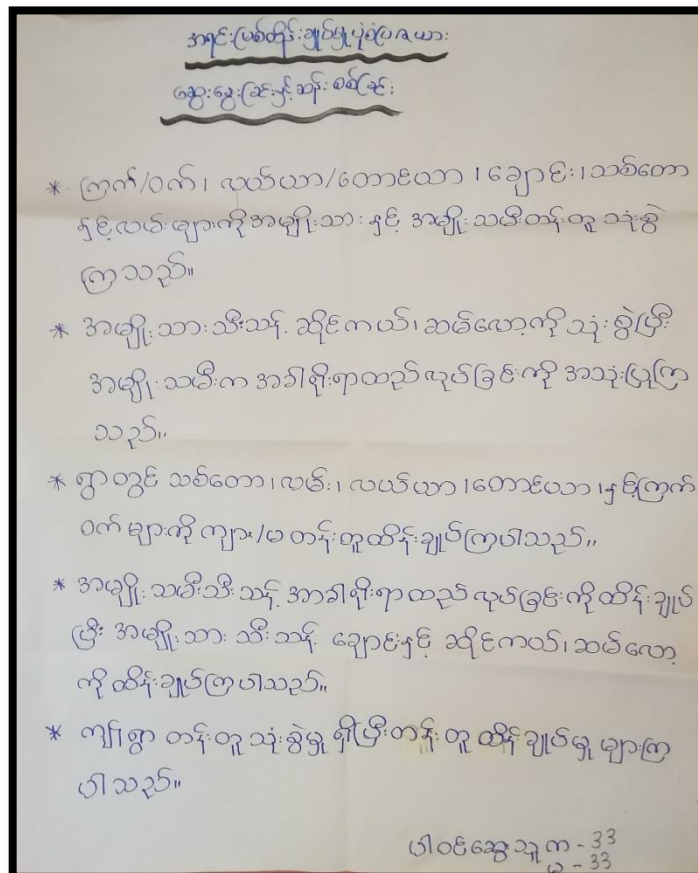 အရင်းမြစ်ထိန်းချုပ်မှုပုံစံပြဇယား
ဆွေးနွေးခြင်းနှင့်ဆန်းစစ်ခြင်း
* ကြက်/ဝက်၊ လယ်ယာ/တောင်ယာ ၊ချောင်း၊သစ်တော
နှင့်လမ်းများကိုအမျိုးသား နှင့် အမျိုးသမီးတန်းတူ သုံးစွဲ
ကြသည်။
* အမျိုးသားသီးသန့် ဆိုင်ကယ်၊ဆမ်လော့ကိုသုံးစွဲပြီး
အမျိုးသမီးက အခါရိုးရာထည်လုပ်ခြင်းကို အသုံးပြုကြ
သည်။
* ရွာတွင် သစ်တော၊လမ်း၊ လယ်ယာ ၊တောင်ယာ၊နှင့်ကြက်
ဝက်များကို ကျား/မ တန်းတူထိန်းချုပ်ကြပါသည်။
* အမျိုးသမီးသီးသန့် အာခါရိုးရာထည်လုပ်ခြင်းကိုထိန်းချုပ်
ပြီး အမျိုးသား သီးသန့် ချောင်းနှင့် ဆိုင်ကယ်၊ဆမ်လော့
ကိုထိန်းချုပ်ကြပါသည်။
* ကျွန်ုပ်ရွာ တန်းတူ သုံးစွဲမှု ရှိပြီးတန်းတူ ထိန်းချုပ်မှု များကြ
ပါသည်။
ပါဝင်ဆွေးသူ က - 33
မ - 33